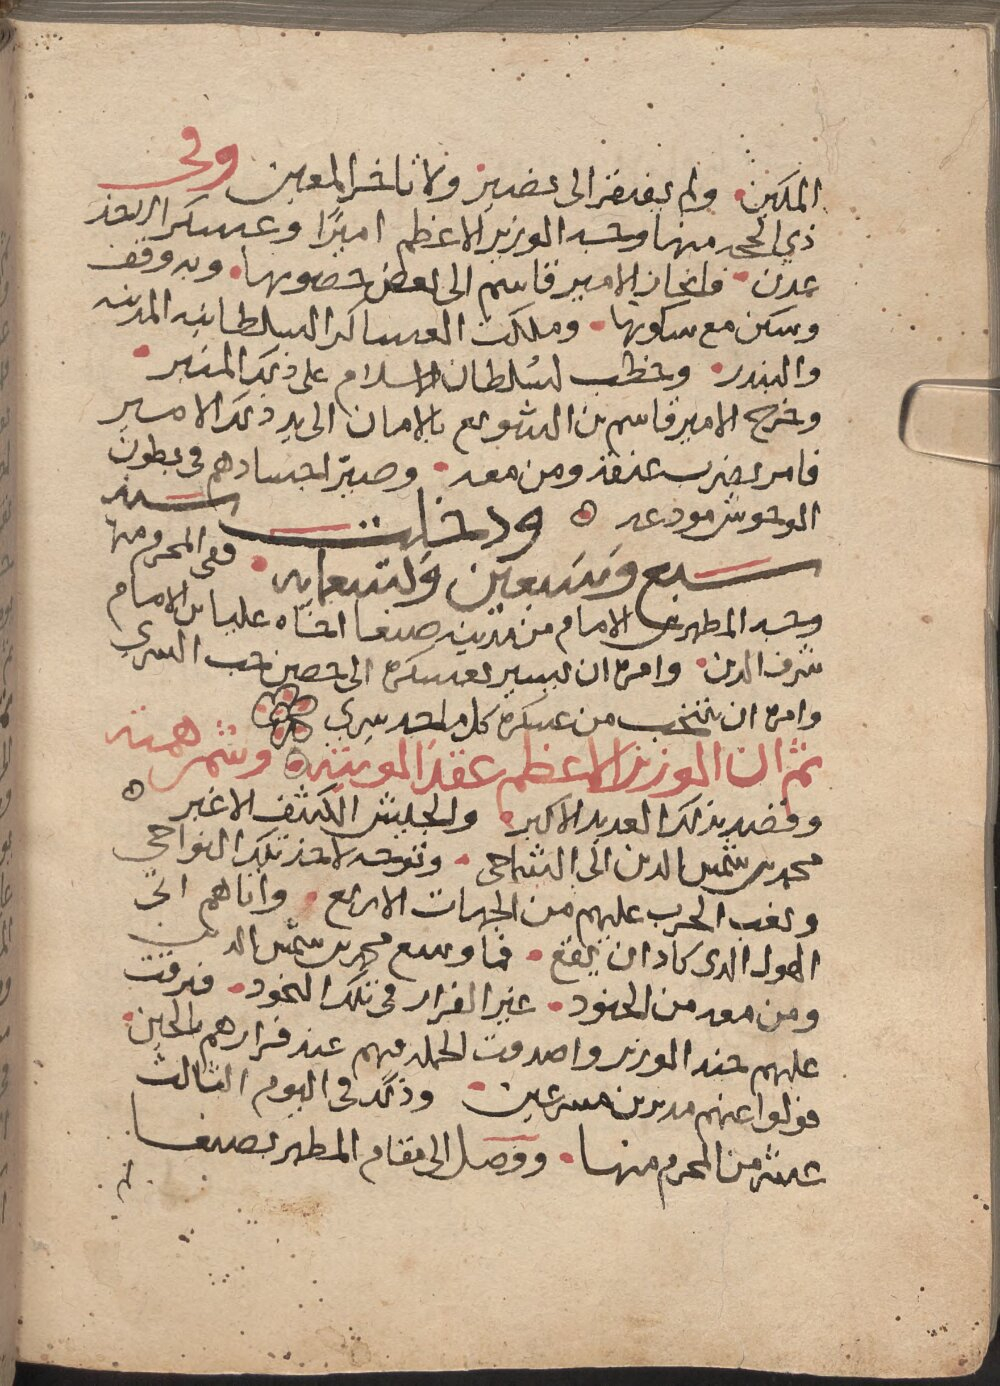 المكين ولم يفتقر الى نصير ولا تاخر المعين وفي
ذي الحجه منها وجه الوزير الاعظم اميرًا وعسكرا لاخذ
عدن فانحاز الامير قاسم الى بعض حصونها وبه وقف
وسكن مع سكونها وملكت العساكر السلطانيه المدينه
والبندر وخطب لسُلطان الاسلام على ذلك المنبر
وخرج الامير قاسم بن الشويع بالامان الى يد ذلك الامير
فامر بضرب عنقه ومن معه وصيرّ اجسادهم في بطون
الوحوش مودعه ودخلت سنه
سبع وسَبعين وتسعمايه ففي المحرم منها
وجه المطهر بن الامام من مدينه صنعا اخاه عليا بن الامام
شرف الدين وامره ان يسير بعسكره الى حصن حب السري
وامره ان ينتخب من عسكره كل ماجد سري
ثم ان الوزير الاعظم عقد الويته وشمر همته
وقصد بذلك العديد الاكبر والجيش الكثف الاغبر
محمد بن شمس الدين الى الشماحي وتوجه لاخذ تلك النواحي
ونصب الحرب عليهم من الجهات الاربع واتاهم
الهول الذي كاد ان يقع فما وسع محمد بن شمس الدين
ومن معه من الجنود غير الفرار في تلك النجود
عليهم جند الوزير واصدقت الحمله فيهم عند فرارهم
فولوا عنهم مدبرين مسرعين وذلك في اليوم الثالث
عشر من المحرم منها ووصل الى مقام المطهر بصنعا